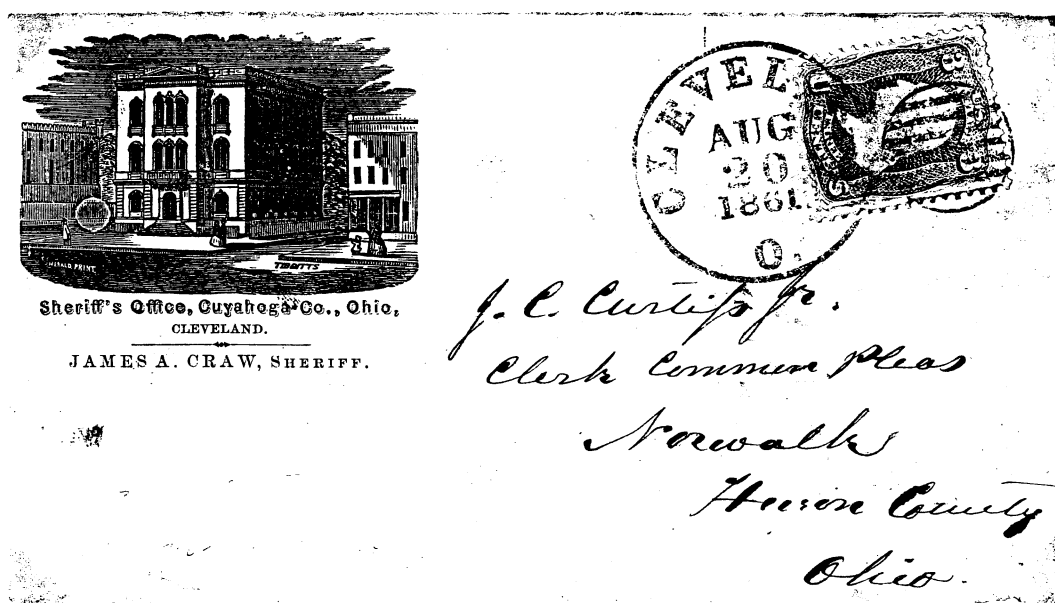 HERALD PRINT
TIBBITTS
Sheriff's Office, Cuyahoga Co., Ohio,
CLEVELAND.
JAMES A. CRAW, SHERIFF.
CLEVEL
AUG
20
1861.
O.
U
S
3
J. C. Curtiss Jr.
Clerk Common Pleas
Norwalk
Huron County
Ohio.